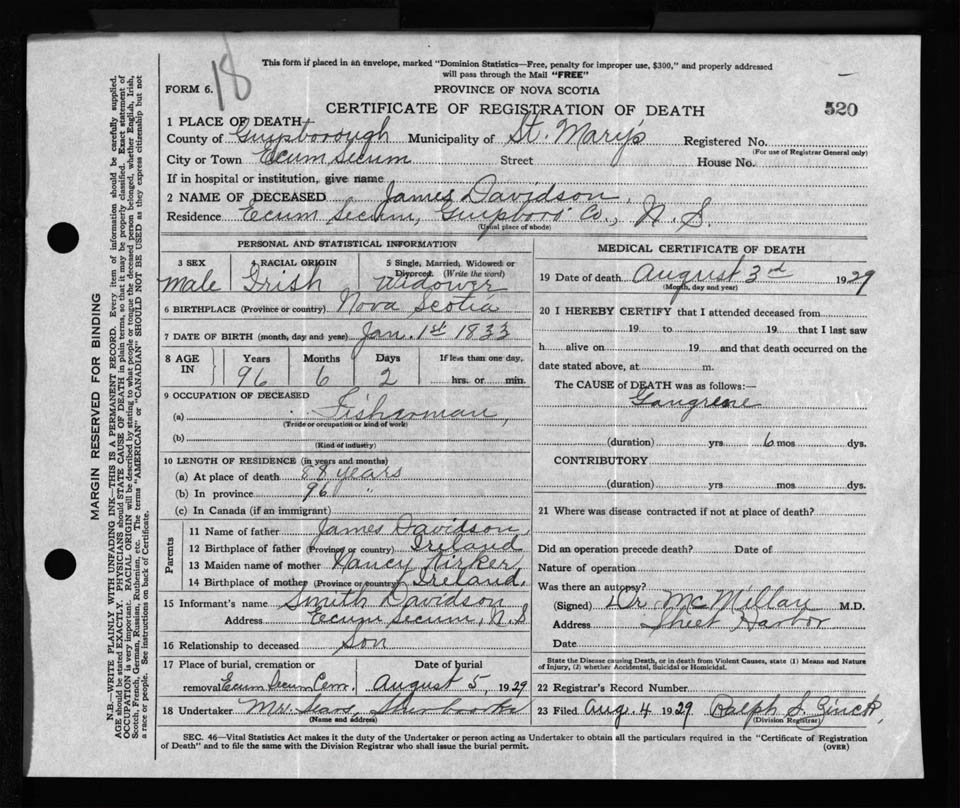 18
This form if placed in an envelope, marked "Dominion Statistics—Free, penalty for improper use, $300," and properly addressed
will pass through the Mail "FREE"
FORM 6.
PROVINCE OF NOVA SCOTIA
CERTIFICATE OF REGISTRATION OF DEATH
520
1 PLACE OF DEATH
County of Guysborough Municipality of St. Mary's Registered No.
(For use of Registrar General only)
City or Town Ecum Secum Street House No.
If in hospital or institution, give name
2 NAME OF DECEASED James Davidson
Residence Ecum Secum, Guysboro Co., N. S.
(Usual place of abode)
PERSONAL AND STATISTICAL INFORMATION
3 SEX 4 RACIAL ORIGIN 5 Single, Married, Widowed or
Divorced. (Write the word)
Male Irish Widower
6 BIRTHPLACE (Province or country) Nova Scotia
7 DATE OF BIRTH (month, day and year) Jan. 1st 1833
8 AGE IN Years Months Days If less than one day,
96 6 2 hrs. or min.
9 OCCUPATION OF DECEASED
(a) Fisherman,
(Trade or occupation or kind of work)
(b)
(Kind of industry)
10 LENGTH OF RESIDENCE (in years and months)
(a) At place of death 88 years
(b) In province 96 "
(c) In Canada (if an immigrant)
Parents
11 Name of father James Davidson,
12 Birthplace of father (Province or country) Ireland
13 Maiden name of mother Nancy Kirker,
14 Birthplace of mother (Province or country) Ireland.
15 Informant's name Smith Davidson
Address Ecum Secum, N.S
16 Relationship to deceased Son
17 Place of burial, cremation or Date of burial
removal Ecum Secum Cem. August 5, 1929
18 Undertaker Mr. Sears, Sherbrooke
(Name and address)
MEDICAL CERTIFICATE OF DEATH
19 Date of death August 3rd 1929
(Month, day and year)
20 I HEREBY CERTIFY that I attended deceased from
19 to 19 that I last saw
h alive on 19 and that death occurred on the
date stated above, at m.
The CAUSE of DEATH was as follows:—
Gangrene
(duration) yrs 6 mos dys.
CONTRIBUTORY
(duration) yrs mos dys.
21 Where was disease contracted if not at place of death?
Did an operation precede death? Date of
Nature of operation
Was there an autopsy?
(Signed) Dr McMillan M.D.
Address Sheet Harbor
Date
State the Disease causing Death, or in death from Violent Causes, state (1) Means and Nature
of Injury, (2) whether Accidental, Suicidal or Homicidal.
22 Registrar's Record Number
23 Filed Aug. 4 1929 Ralph S.
(Division Registrar)
SEC. 46—Vital Statistics Act makes it the duty of the Undertaker or person acting as Undertaker to obtain all the particulars required in the "Certificate of Registration
of Death" and to file the same with the Division Registrar who shall issue the burial permit. (OVER)
MARGIN RESERVED FOR BINDING
N.B.—WRITE PLAINLY WITH UNFADING INK—THIS IS A PERMANENT RECORD. Every item of information should be carefully supplied.
AGE should be stated EXACTLY. PHYSICIANS should STATE CAUSE OF DEATH in plain terms, so that it may be properly classified. Exact statement of
OCCUPATION is very important. RACIAL ORIGIN will be described by stating to what people or tongue the deceased person belonged, whether English, Irish,
Scotch, French, German, Russian, Ruthenian, etc. The terms "AMERICAN" or "CANADIAN" SHOULD NOT BE USED as they express citizenship but not
a race or people. See instructions on back of Certificate.